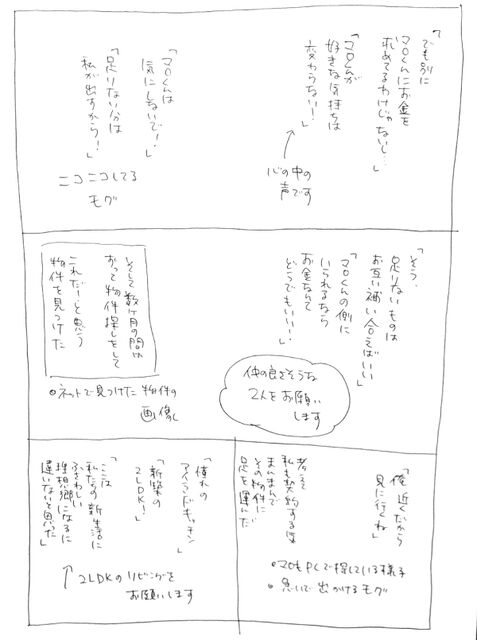 「でも別に
マ〇くんにお金を
求めてるわけじゃないし…
「マ〇くんが
好きな気持ちは
変わらない！」
心の中の
声です
「マ〇くんは
気にしないで！」
「足りない分は
私が出すから！」
ニコニコしてる
モグ
「そう、
足りないものは
お互い補い合えばいい
「マ〇くんの側に
いられるなら
お金なんて
どうでもいい！」
仲の良さそうな
2人をお願い
します
そして数ヶ月の間は
ずっと物件探しをして
これだーと思う
物件を見つけた
ネットで見つけた物件の
画像
「俺近くだから
見に行くね」
私も契約する
まんまんで
その物件に
足を運んだ
マ〇もPCで探している様子
急いで出かけるモグ
「憧れの
アイランドキッチン」
「新築の
2LDK！」
「ここは
私たちの新生活に
ふさわしい
理想郷になるに
違いないと思った」
2LDKのリビングを
お願いします